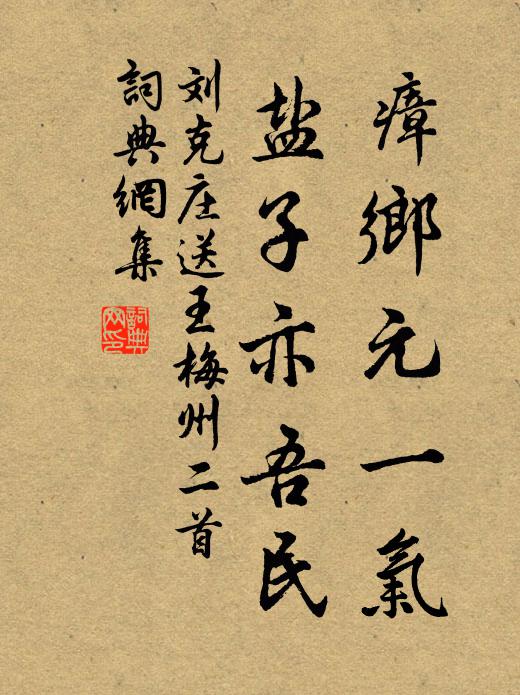 瘴鄉元一氣
盐子亦吾民
刘克庄送王梅州二首
詞典網集
詞典
网印